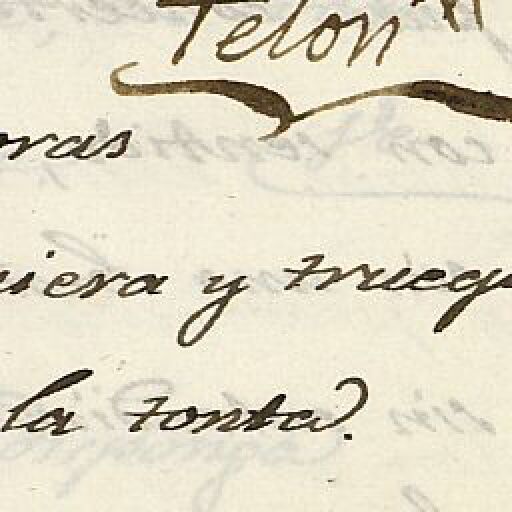 Telon
oras
uiera y trueg
la tonta.